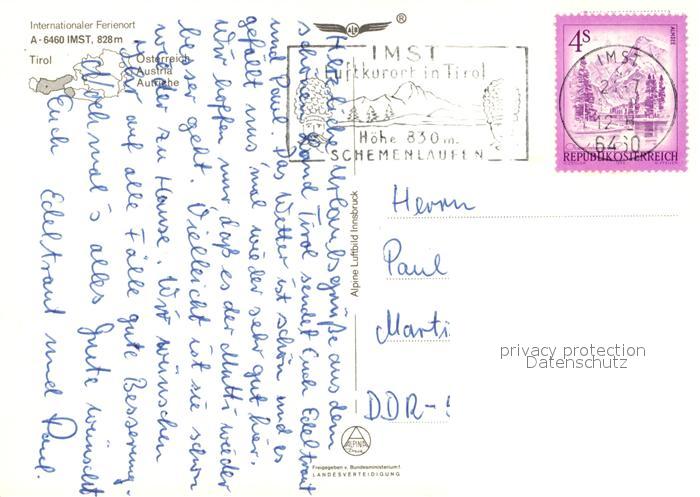 Internationaler Ferienort
A-6460 IMST, 828 m
Tirol
Österreich
Austria
Autriche
®
IMST
Luftkurort in Tirol
Höhe 830 m.
SCHEMENLAUFEN
4S
ALMSEE
IMST
6460
REPUBLIK ÖSTERREICH
Herzliche Urlaubsgrüße aus dem
schönen Land Tirol sendet Euch Edeltraut
und Paul. Das Wetter ist schön und es
gefällt uns 'mal wieder sehr gut hier.
Wir hoffen nur daß es der Mutti wieder
besser geht. Vielleicht ist sie schon
wieder zu Hause. Wir wünschen
ihr auf alle Fälle gute Besserung.
Nochmal's alles Gute wünscht
Euch Edeltraut und Paul.
Alpine Luftbild Innsbruck
Herrn
Paul
Marti
DDR-
privacy protection
Datenschutz
ALPINE
Freigegeben v. Bundesministerium f.
LANDESVERTEIDIGUNG